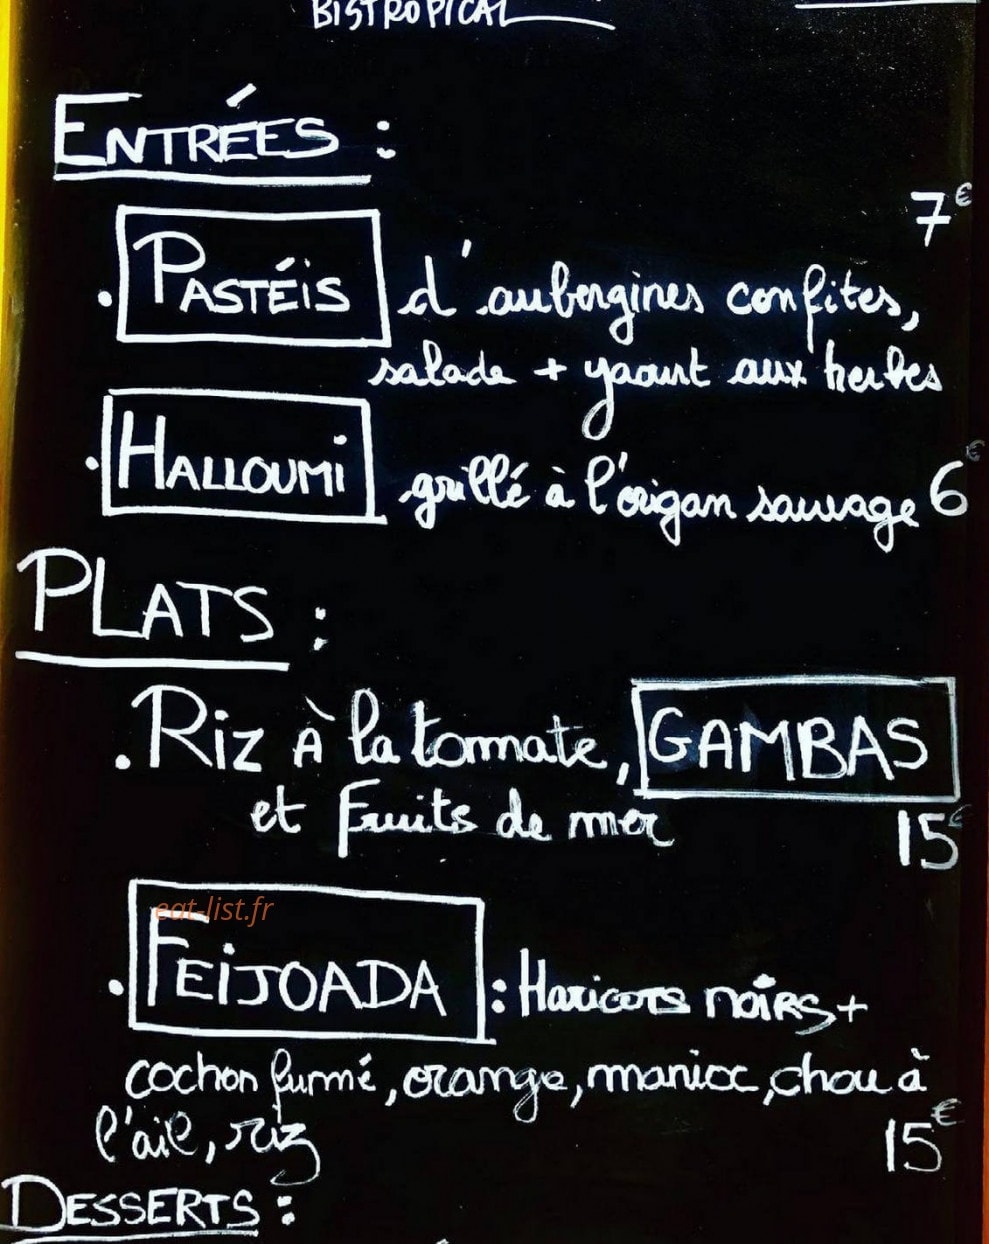 BISTROPICAL
ENTRÉES :
7€
. PASTÉIS d'aubergines confites,
salade + yaourt aux herbes
. HALLOUMI grillé à l'origan sauvage 6€
PLATS :
. RIZ À la tomate, GAMBAS
et Fruits de mer 15€
eat-list.fr
. FEIJOADA : Haricots noirs +
cochon fumé, orange, manioc, chou à
l'ail, riz 15€
DESSERTS :